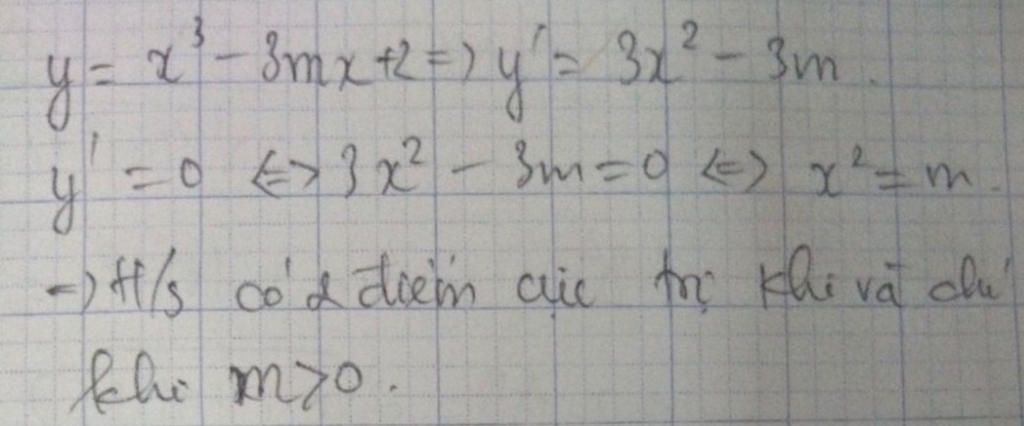 y = x³ - 3mx + 2 => y' = 3x² - 3m.
y' = 0 <=> 3x² - 3m = 0 <=> x² = m.
=> H/s có 2 điểm cực trị khi và chỉ
khi m > 0.